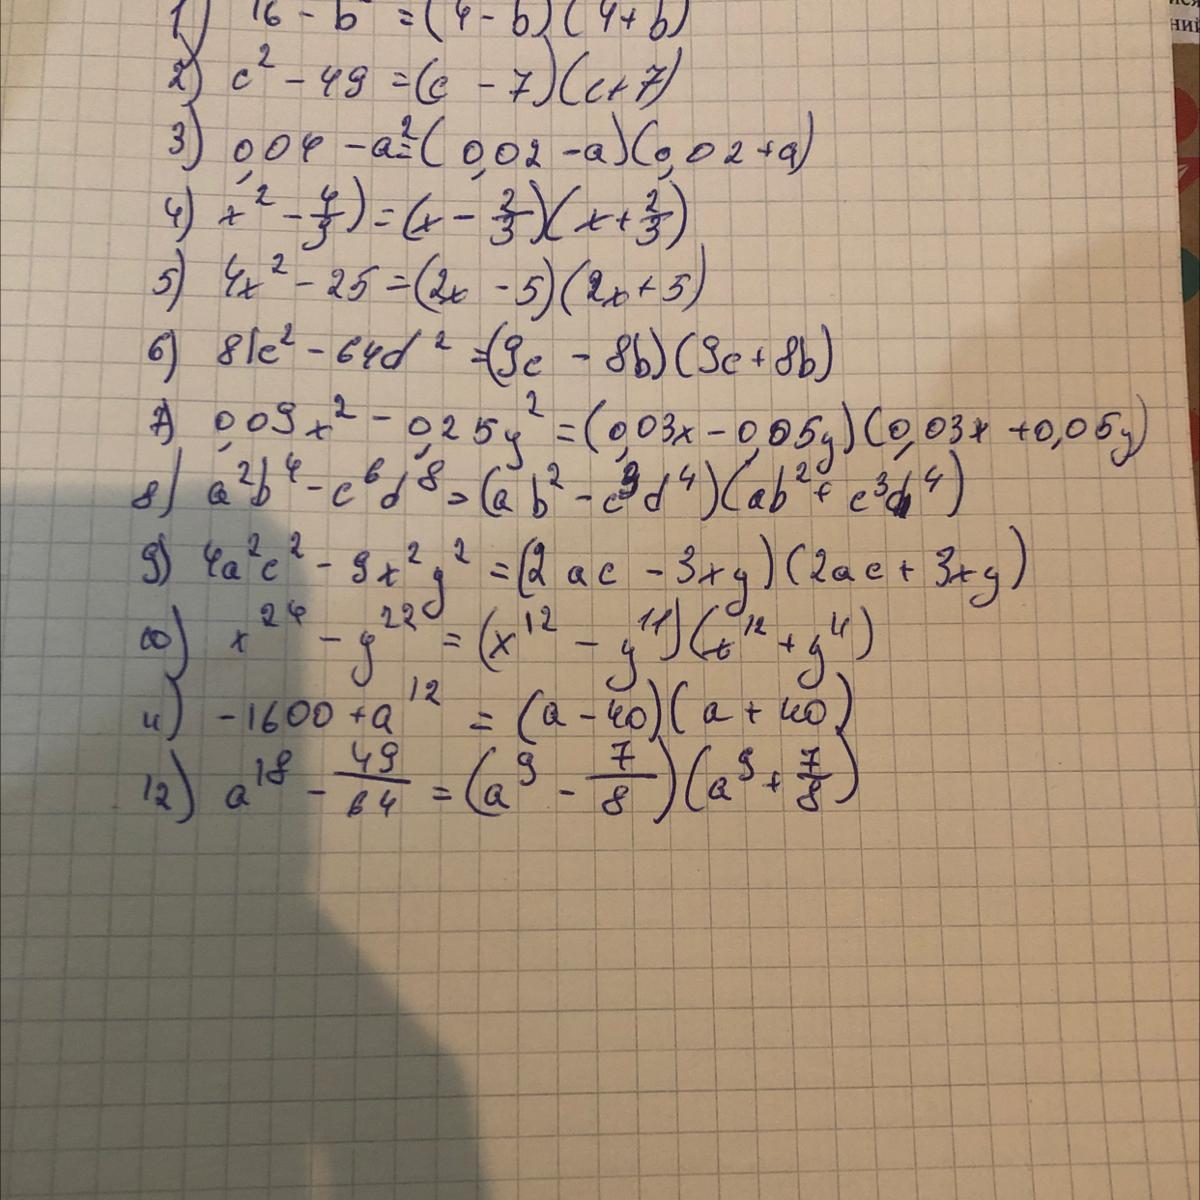 1) 16 - b = (4 - b)(4 + b)
2) c² - 49 = (c - 7)(c + 7)
3) 0,04 - a² = (0,02 - a)(0,02 + a)
4) x² - 4/3) = (x - 2/3)(x + 2/3)
5) 4x² - 25 = (2x - 5)(2x + 5)
6) 81c² - 64d² = (9c - 8b)(9c + 8b)
7) 0,09x² - 0,25y² = (0,03x - 0,05y)(0,03x + 0,05y)
8) a²b⁴ - c⁶d⁸ = (ab² - c³d⁴)(ab² + c³d⁴)
9) 4a²c² - 9x²y² = (2ac - 3xy)(2ac + 3xy)
10) x²⁴ - y²² = (x¹² - y¹¹)(x¹² + y⁴)
11) -1600 + a¹² = (a - 40)(a + 40)
12) a¹⁸ - 49/64 = (a⁹ - 7/8)(a⁹ + 7/8)